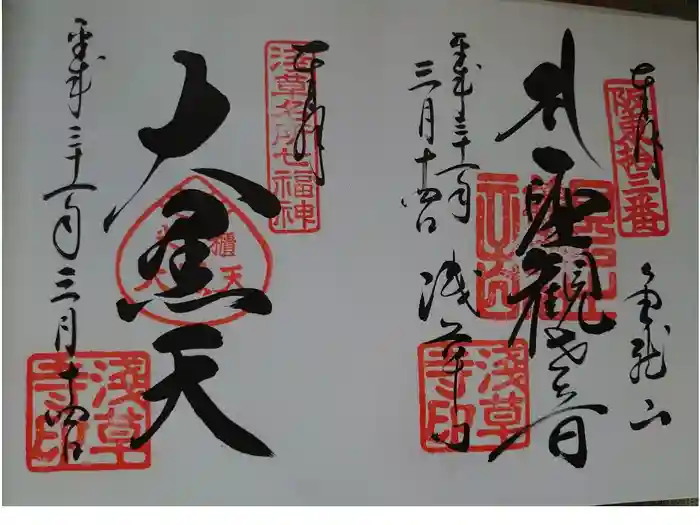 奉拝
阪東拾三番
金龍山
聖観世音
平成三十一年
三月十四日
浅草寺
浅草寺印
奉拝
浅草名所七福神
大黒天
平成三十一年三月十四日
浅草寺印